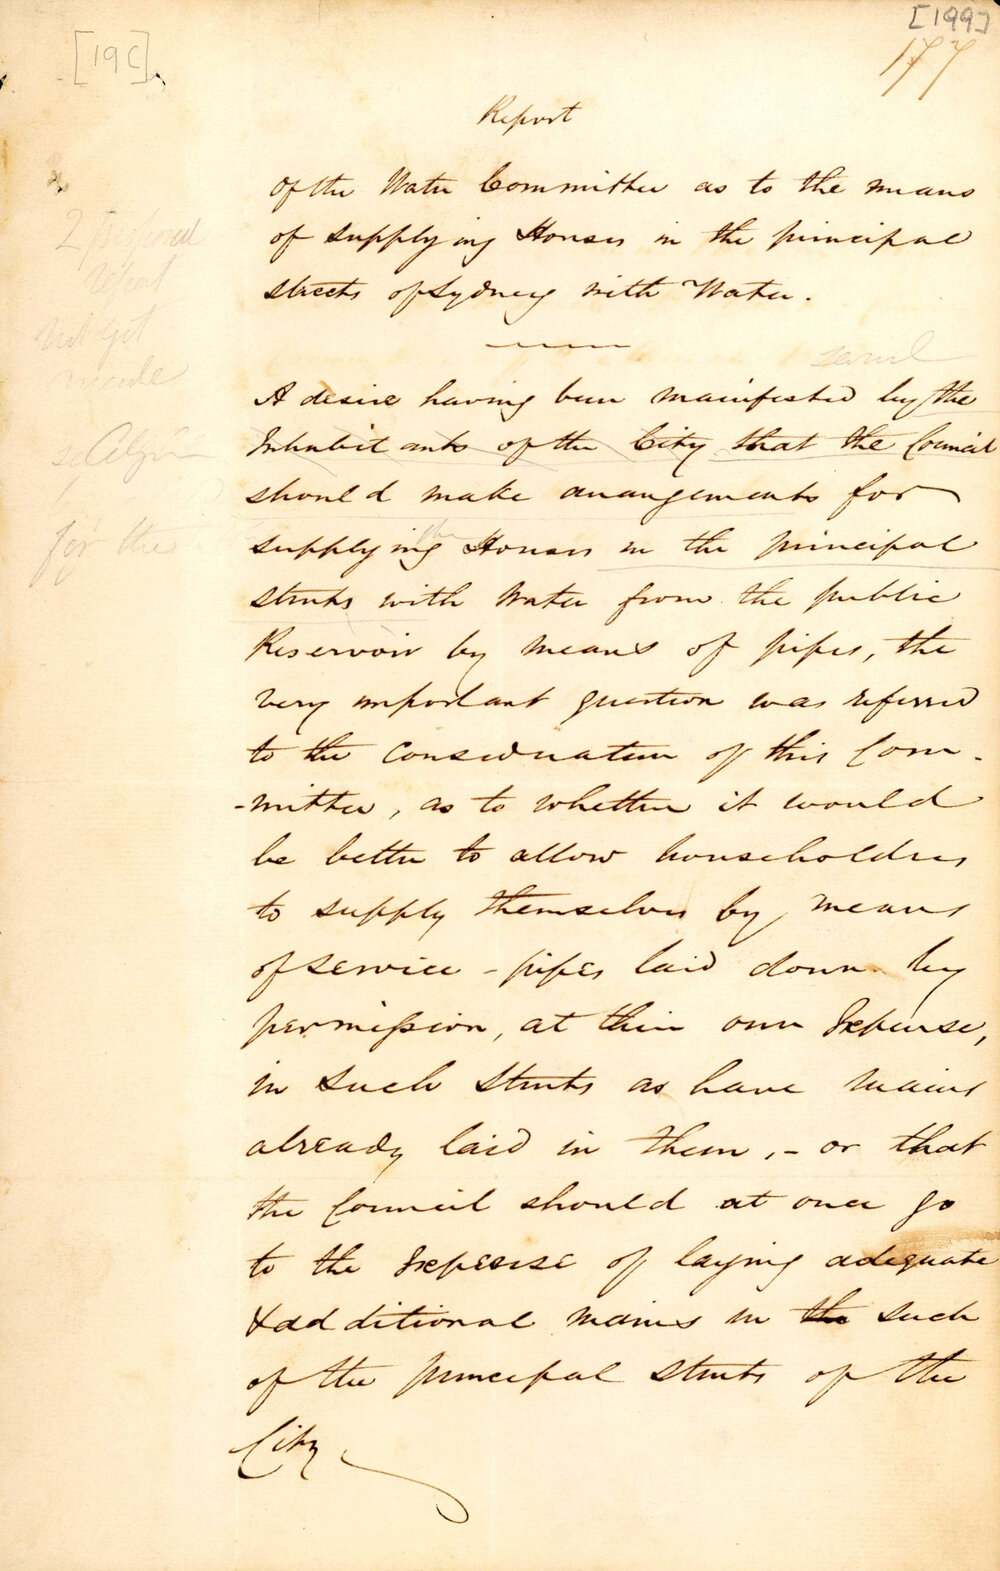 [199]
[19C]
177
Report
of the Water Committee as to the means
of supplying Houses in the principal
streets of Sydney with Water.
A desire having been manifested by the
Inhabitants of the City that the Council
should make arrangements for
supplying Houses in the principal
streets with Water from the public
Reservoir by means of pipes, the
very important question was referred
to the consideration of this Com-
-mittee, as to whether it would
be better to allow householders
to supply themselves by means
of service-pipes laid down by
permission, at their own Expense,
in such streets as have mains
already laid in them, - or that
the Council should at once go
to the Expense of laying adequate
& additional mains in the such
of the principal streets of the
City
not yet
made
for the